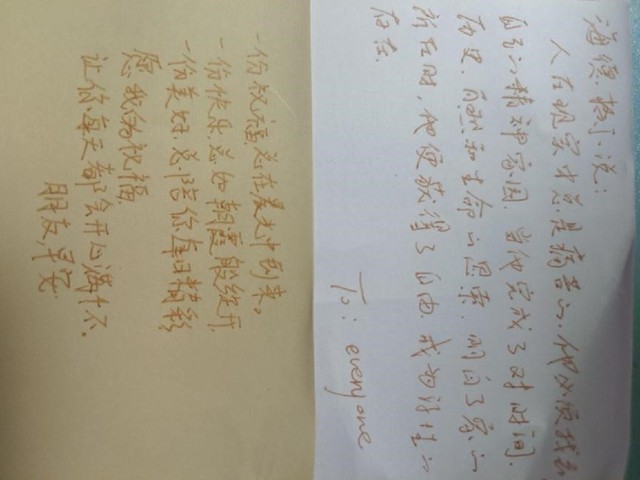 海德格尔说:
人在现实中总是痛苦的,他必须找到
自己的精神家园,当他完成了对时间、
历史、自然和生命的思索,明白了家的
所在时,他便获得了自由,成为诗性的
存在。
To: everyone
一份祝福,总在晨光中到来。
一份快乐,总如朝霞般绽开,
一份美好,总陪你度日精彩
愿我的祝福,
让你每天都会开心满十分。
朋友,早安